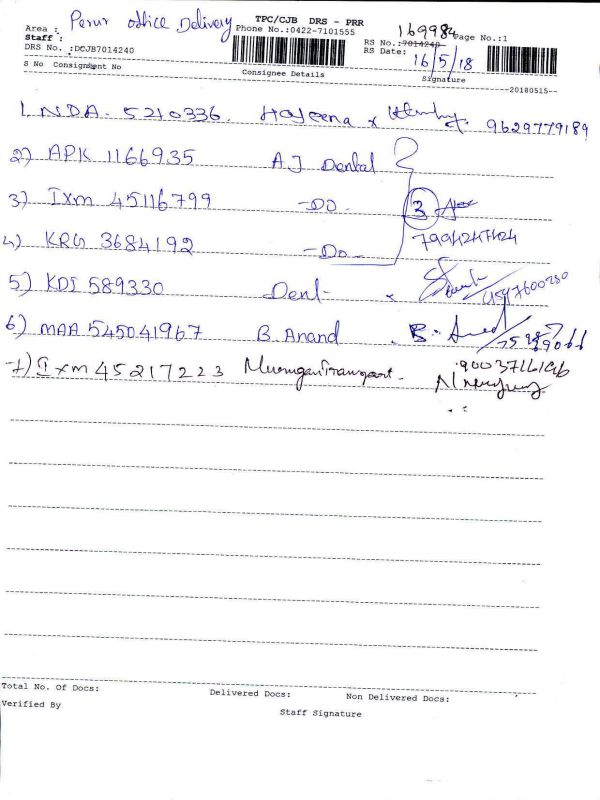 Perur office Delivery TPC/CJB DRS - PRR 169984
Area : Phone No.:0422-7101555 RS No.:7014240 Page No.:1
Staff :
DRS No. :DCJB7014240 RS Date: 16/5/18
S No Consignment No Consignee Details Signature
20180515
1. NDA. 5210336. Hajeena x 9629779189
2) APK 1166935 A.J Dental
3) Ixm 45116799 -Do- 3
7994247424
4) KRG 3684192 -Do-
5) KDI 589330 Dent- x
6) MAA 545041967 B. Anand
7) Ixm 45217223 Murugan Transport. 9003716196
Total No. Of Docs: Delivered Docs: Non Delivered Docs:
Verified By Staff Signature